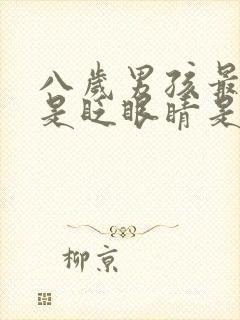 八歲男孩最
是眨眼睛是
柳京